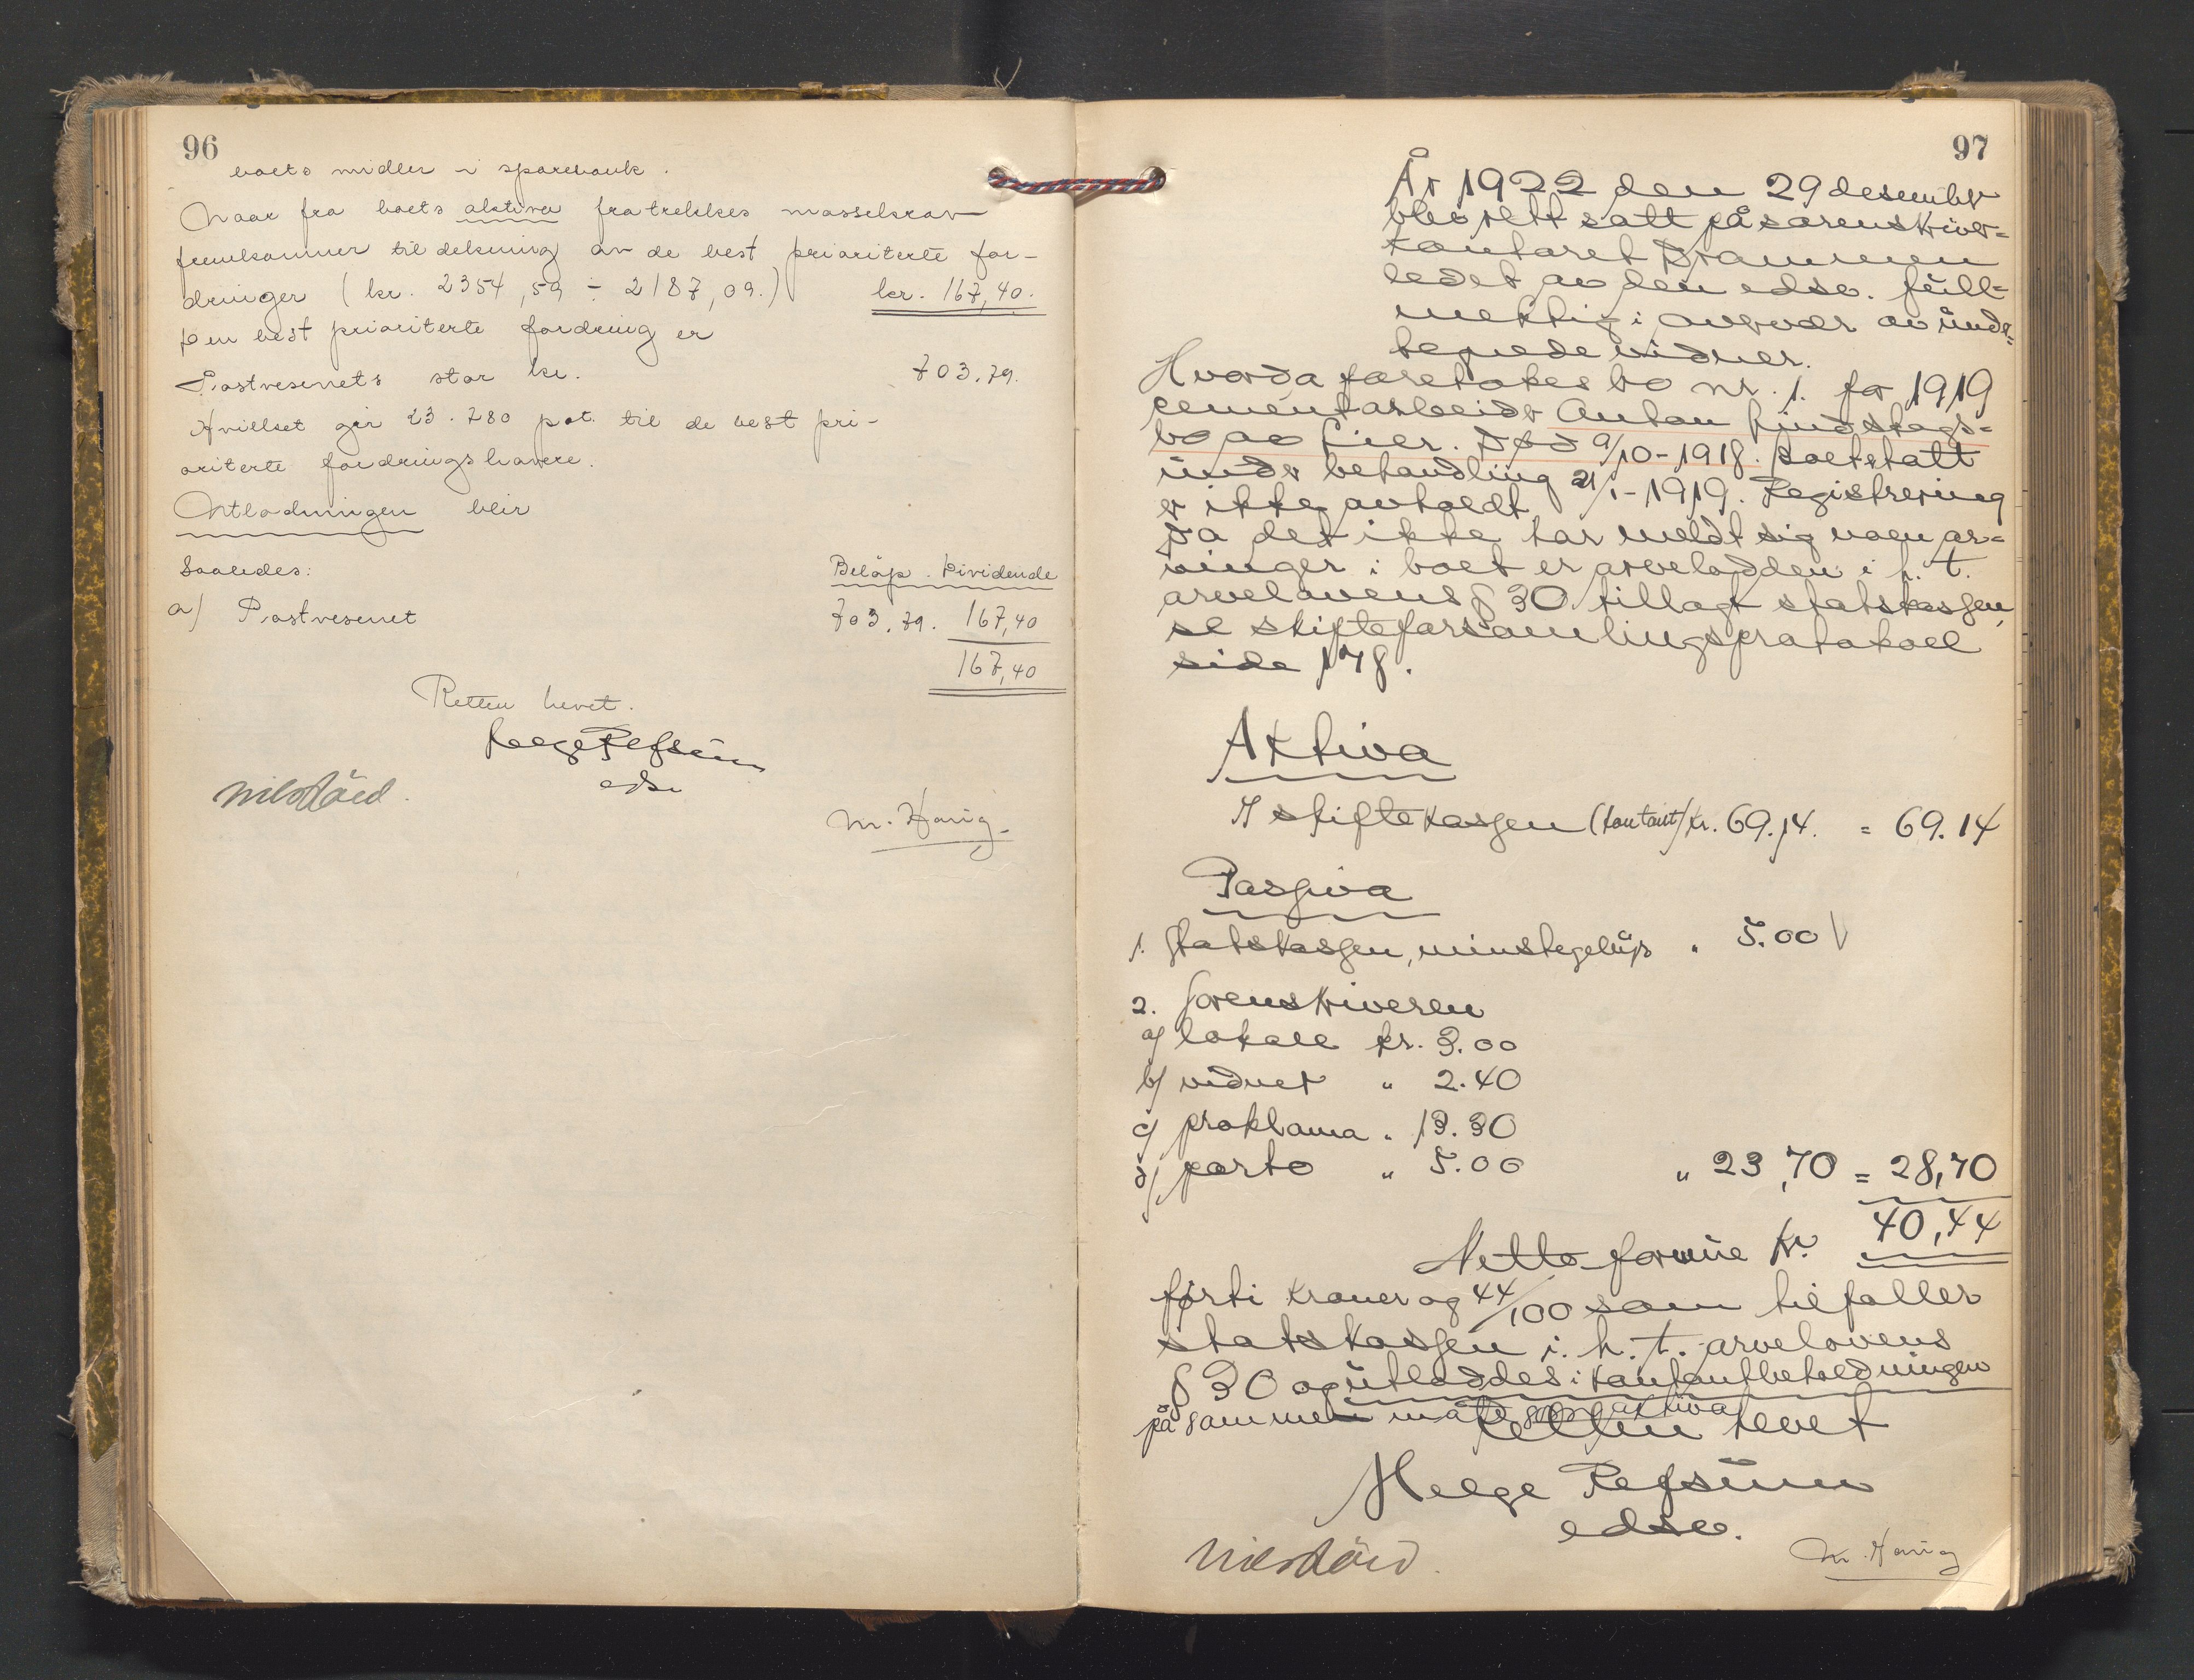 96
boets midler i sparebank.
Naar fra boets aktiva fratrekkes massekrav
fremkommer til dekning av de best prioriterte for-
dringer (kr. 2354,59 ÷ 2187,09.) kr. 167,40.
Den best prioriterte fordring er
Postvesenets stor kr. 703.79.
Hvilket gir 23.780 pct. til de best pri-
oriterte fordringshavere.
Utlodningen blir
saaledes: Beløp. Dividende
a) Postvesenet 703.79. 167,40
167,40
Retten hevet.
Helge Refsum
edsv
M. Hönig
97
År 1922 den 29 desember
blev rett satt på sorenskriver-
kontoret Drammen
ledet av den edsv. full-
mektig i overvær av under-
tegnede vidner.
Hvorda foretokes bo nr. 1. for 1919
cementarbeider Anton Lindskogs-
bo av Lier. Død 9/10-1918. Boet tatt
under behandling 21/1-1919. Registrering
er ikke avholdt.
Da det ikke har meldt sig noen ar-
vinger i boet er arvelodden i h. t.
arvelovens § 30 tillagt statskassen,
se skifteforsamlingsprotokoll
side 178.
Aktiva
I skiftekassen (kontant) kr. 69.14. = 69.14
Passiva
1. Statskassen, minstegebyr " 5.00
2. Sorenskriveren
a) lokale kr. 3.00
b) vidner " 2.40
c) proklama " 13.30
d) porto " 5.00 " 23,70 = 28,70
Netto formue kr. 40,44
førti kroner og 44/100 som tilfaller
statskassen i. h. t. arvelovens
§ 30 og utloddes i kontantbeholdningen
på samme måte som aktiva
Retten hevet
Helge Refsum
edsv.
M. Hönig